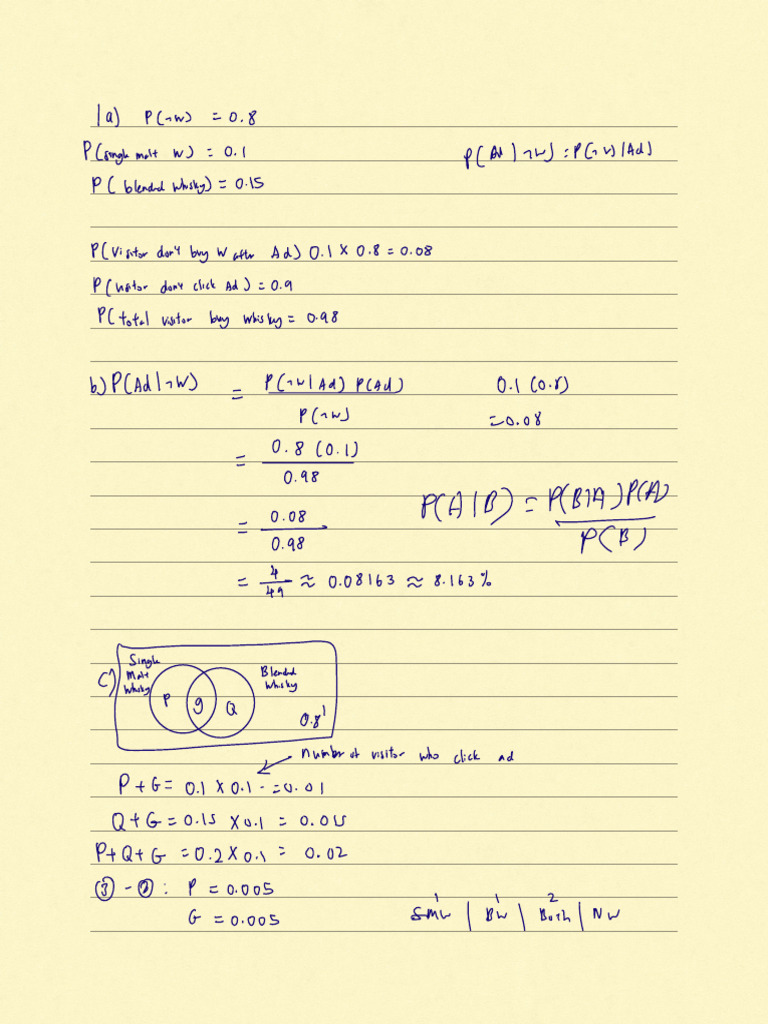 1a) P(¬W) = 0.8
P(single malt W) = 0.1
P(Ad|¬W) = P(¬W|Ad)
P(blended whisky) = 0.15
P(Visitor don't buy W after Ad) 0.1 × 0.8 = 0.08
P(visitor don't click Ad) = 0.9
P(total visitor buy whisky = 0.98
b) P(Ad|¬W) = P(¬W|Ad) P(Ad) / P(¬W)
0.1 (0.8)
= 0.08
= 0.8 (0.1) / 0.98
P(A|B) = P(B|A) P(A) / P(B)
= 0.08 / 0.98
= 4/49 ≈ 0.08163 ≈ 8.163%
c)
Single Malt Whisky
Blended Whisky
P g Q
0.8
number of visitor who click ad
P + G = 0.1 × 0.1 = 0.01
Q + G = 0.15 × 0.1 = 0.015
P + Q + G = 0.2 × 0.1 = 0.02
③ - ② : P = 0.005
G = 0.005
1 1 2
SMW | BW | Both | NW